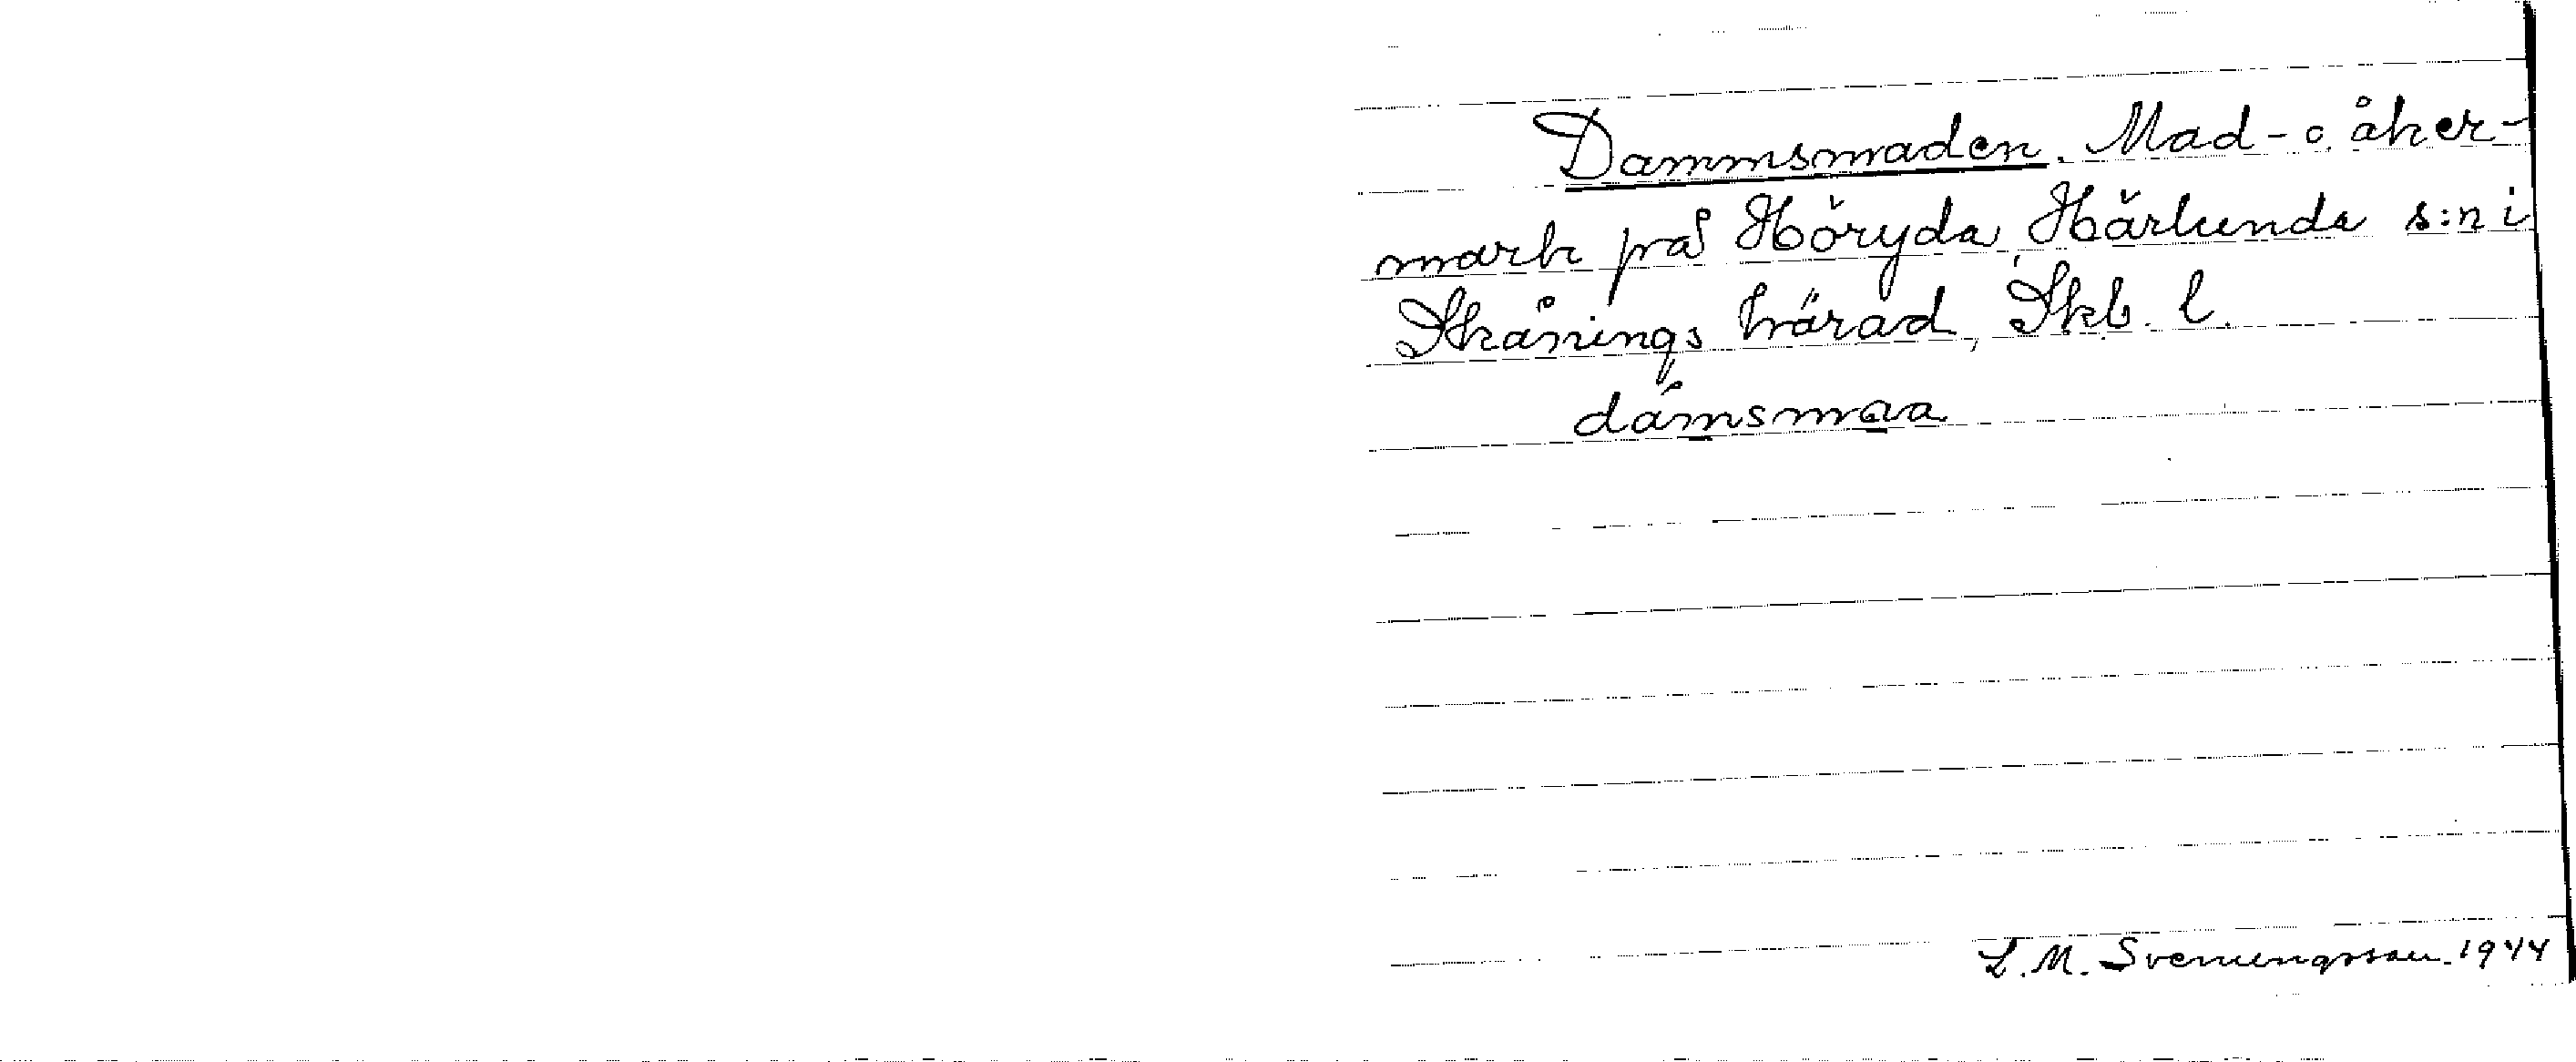 Dammsmaden. Mad- o. åker-
mark på Höryda, Härlunda s:n i
Skånings härad, Skb. l.
dámsmaa
L. M. Svenungsson. 1944